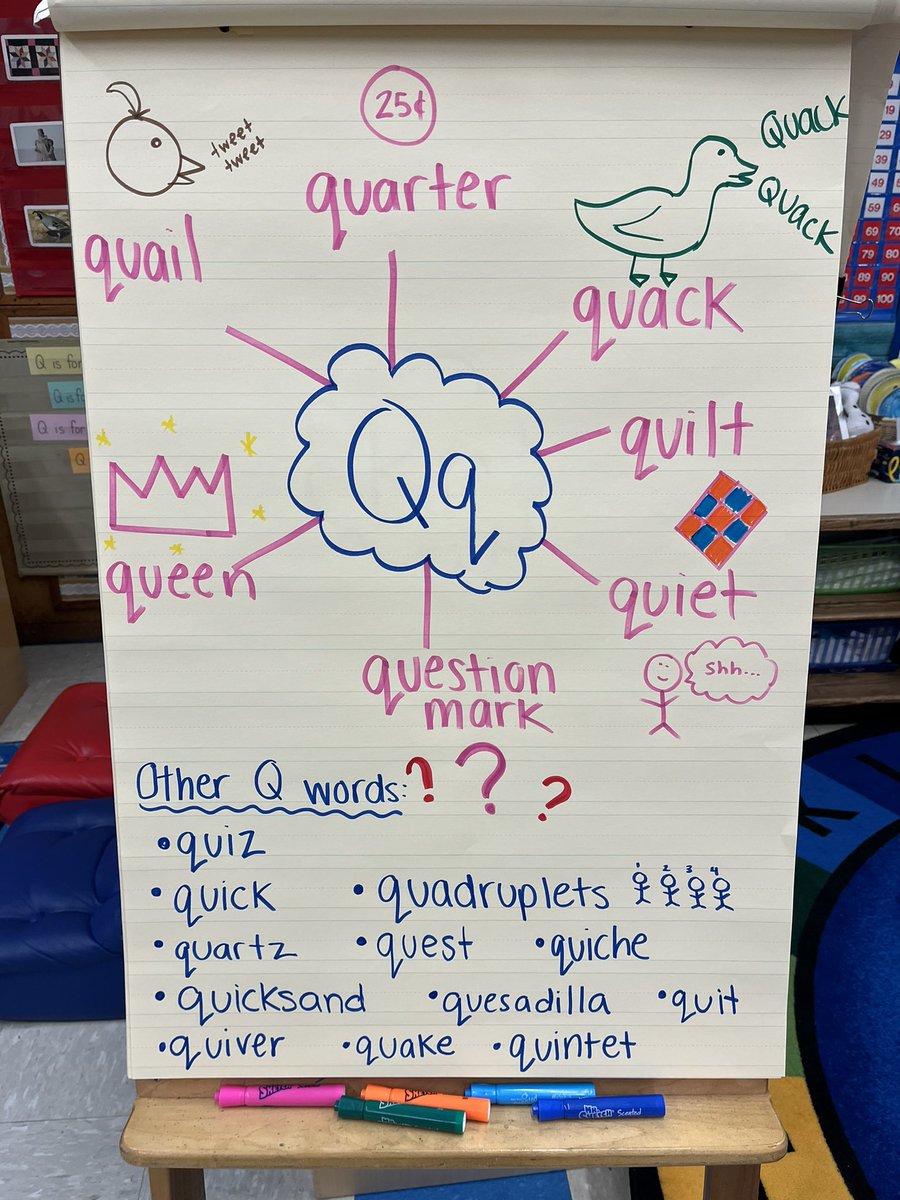 25¢
tweet
tweet
Quack
Quack
quarter
quail
quack
quilt
Qq
queen
quiet
shh...
question
mark
Other Q words:
? ? ?
• quiz
• quick • quadruplets 1 2 3 4
• quartz • quest • quiche
• quicksand • quesadilla • quit
• quiver • quake • quintet
Q is for
Q is fo
Q is for
Q
29
39
49
59
69 70
79 80
89 90
99 100
Mr. Sketch Scented